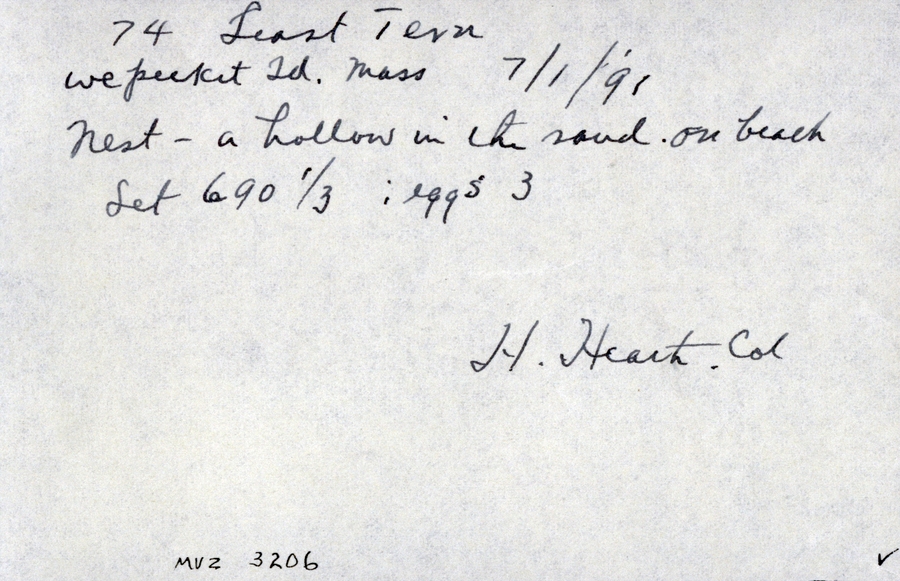 74 Least Tern
Wepeckit Id. Mass 7/1/'91
Nest - a hollow in the sand. on beach
Set 690 1/3 ; eggs 3
H. Heart. Col
MVZ 3206 ✓